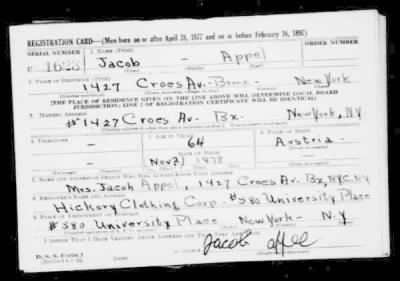 REGISTRATION CARD—(Men born on or after April 28, 1877 and on or before February 16, 1897)
SERIAL NUMBER 1. NAME (Print) ORDER NUMBER
U 1623 Jacob - Appel
(First) (Middle) (Last)
2. PLACE OF RESIDENCE (Print)
1427 Croes Av. Bronx - New York
(Number and street) (Town, township, village, or city) (County) (State)
[THE PLACE OF RESIDENCE GIVEN ON THE LINE ABOVE WILL DETERMINE LOCAL BOARD
JURISDICTION; LINE 2 OF REGISTRATION CERTIFICATE WILL BE IDENTICAL]
3. MAILING ADDRESS
#1427 Croes Av. Bx. New York, N.Y
4. TELEPHONE 5. AGE IN YEARS 6. PLACE OF BIRTH
- 64 Austria -
DATE OF BIRTH
Nov 21 1878
7. NAME AND ADDRESS OF PERSON WHO WILL ALWAYS KNOW YOUR ADDRESS
Mrs. Jacob Appel, 1427 Croes Av. Bx, NYC. NY
8. EMPLOYER'S NAME AND ADDRESS
Hickory Clothing Corp - #580 University Place
9. PLACE OF EMPLOYMENT OR BUSINESS
#580 University Place New York - N.Y
I AFFIRM THAT I HAVE VERIFIED ABOVE ANSWERS AND THAT THEY ARE TRUE.
D. S. S. Form 1 Jacob Appel